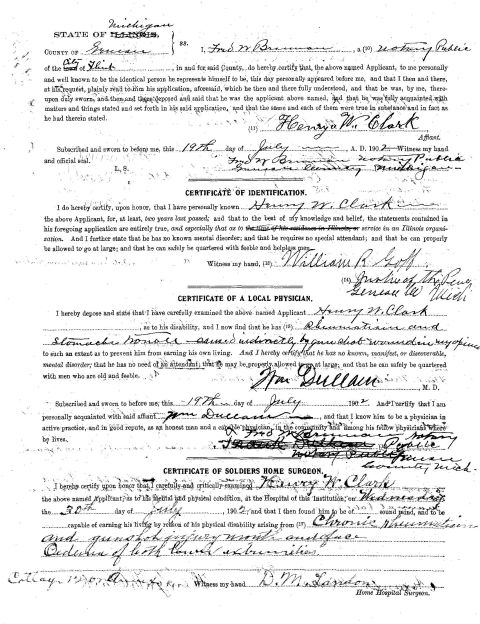 Michigan
STATE OF ILLINOIS,
COUNTY OF Genesee } ss. I, Fred W Brennan, a (10) Notary Public
of the City of Flint in and for said County, do hereby certify that the above named Applicant, to me personally
and well known to be the identical person he represents himself to be, this day personally appeared before me, and that I then and there,
at his request, plainly read to him his application, aforesaid, which he then and there fully understood, and that he was, by me, there-
upon duly sworn, and then and there deposed and said that he was the applicant above named, and that he was fully acquainted with
matters and things stated and set forth in his said application, and that the same and each of them were true in substance and in fact as
he had therein stated.
(11) Henry W. Clark
Affiant.
Subscribed and sworn to before me, this 19th day of July A. D. 1902 Witness my hand
and official seal. Fred W Brennan Notary Public
L. S. Genesee County Michigan
CERTIFICATE OF IDENTIFICATION.
I do hereby certify, upon honor, that I have personally known Henry W. Clark
the above Applicant, for, at least, two years last passed; and that to the best of my knowledge and belief, the statements contained in
his foregoing application are entirely true, and especially that as to the time of his residence in Illinois, or service in an Illinois organi-
zation. And I further state that he has no known mental disorder; and that he requires no special attendant; and that he can properly
be allowed to go at large; and that he can safely be quartered with feeble and helpless men.
Witness my hand, William R Goff
(14) Justice of the Peace
Genesee Co Mich
CERTIFICATE OF A LOCAL PHYSICIAN.
I hereby depose and state that I have carefully examined the above named Applicant Henry W. Clark
, as to his disability, and I now find that he has Rheumatism and
Stomache trouble caused indirectly by gun shot wound in
to such an extent as to prevent him from earning his own living. And I hereby certify that he has no known, manifest, or discoverable,
mental disorder; that he has no need of an attendant; that he may be properly allowed to go at large; and that he can safely be quartered
with men who are old and feeble. Wm Dullam M. D.
Subscribed and sworn to before me, this 19th day of July 1902. And I certify that I am
personally acquainted with said affiant Wm Dullam, and that I know him to be a physician in
active practice, and in good repute, as an honest man and a capable physician, in the community and among his fellow physicians where
he lives. Fred W Brennan Notary
Public
Genesee
County, Mich.
CERTIFICATE OF SOLDIERS HOME SURGEON.
I hereby certify upon honor that I carefully and critically examined Henry W. Clark
the above named Applicant, as to his mental and physical condition, at the Hospital of this Institution, on Wednesday
the 30th day of July, 1902, and that I then found him to be of sound mind, and to be
capable of earning his living by reason of his physical disability arising from (17) Chronic Rheumatism
and gunshot injury mouth and face
Oedema of both lower extremities.
Cottage Witness my hand D. M. Landon
Home Hospital Surgeon.